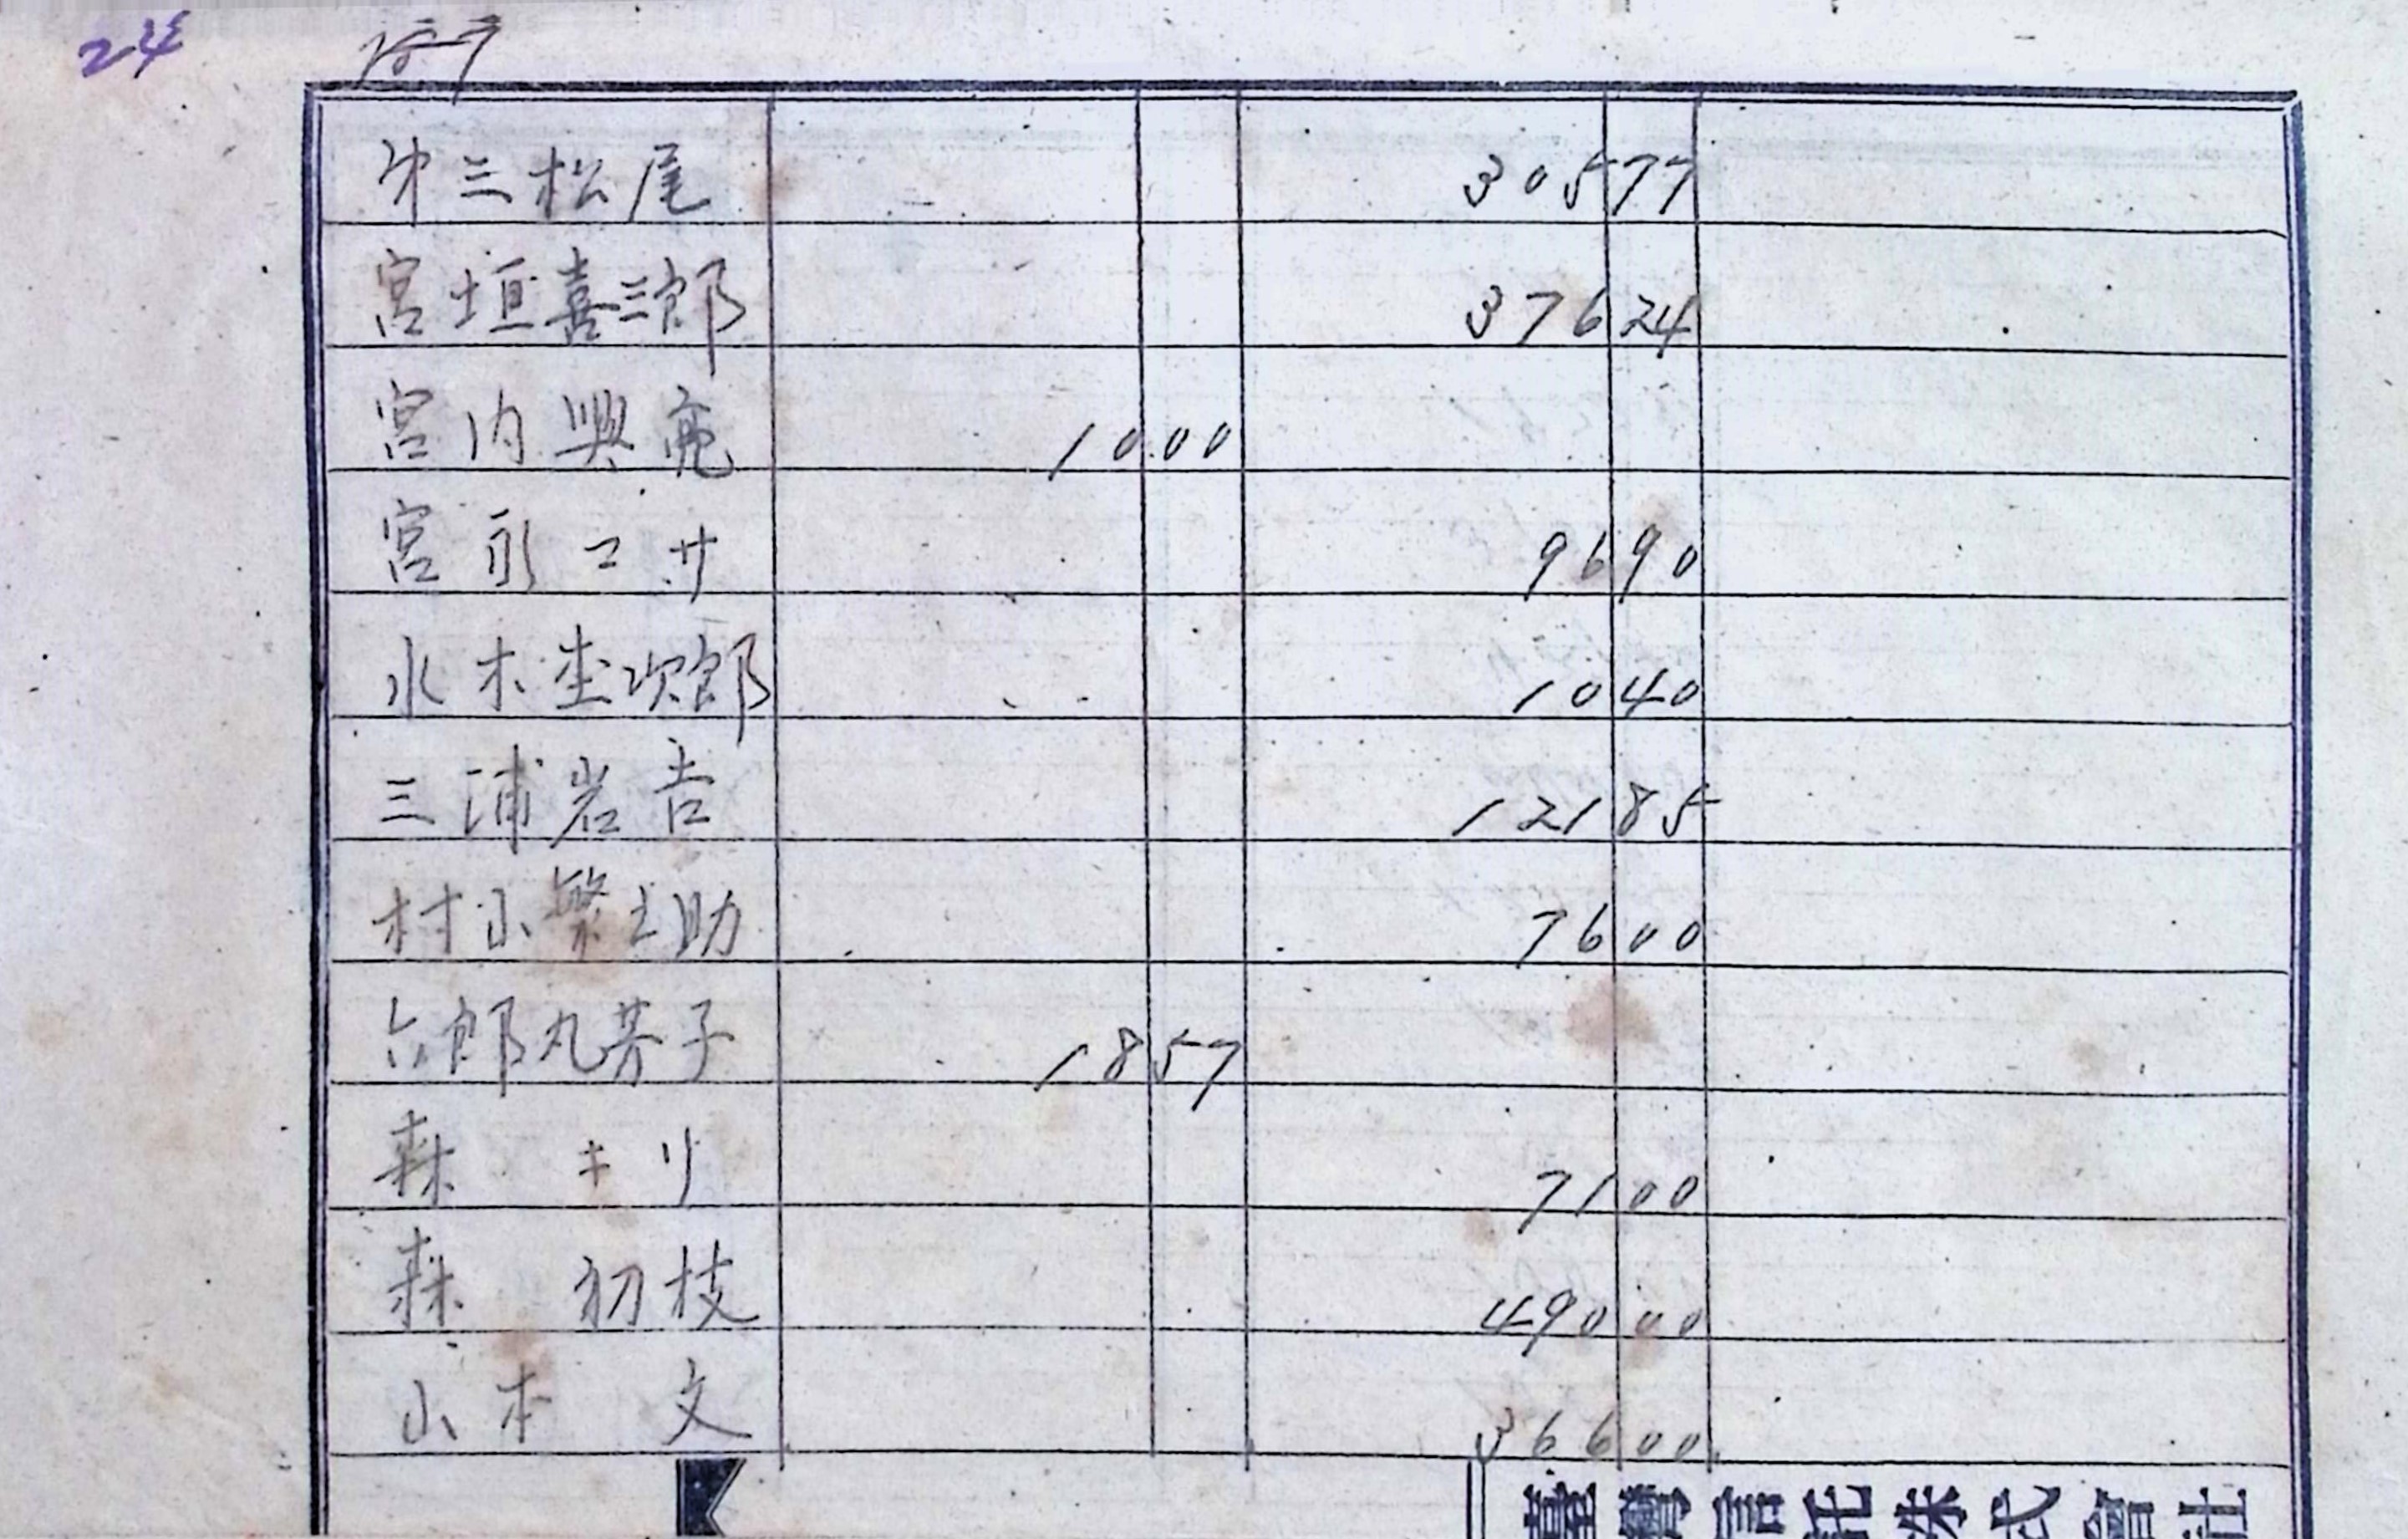 24
三松尾 30577
宮垣喜三郎 37624
宮内興亮 1000
宮永コサ 9690
水木坐次郎 1040
三浦岩吉 12185
村山繁之助 7600
六郎丸芳子 1857
森 キリ 7100
森 初枝 49000
山本 文 36600
臺灣信託株式會社